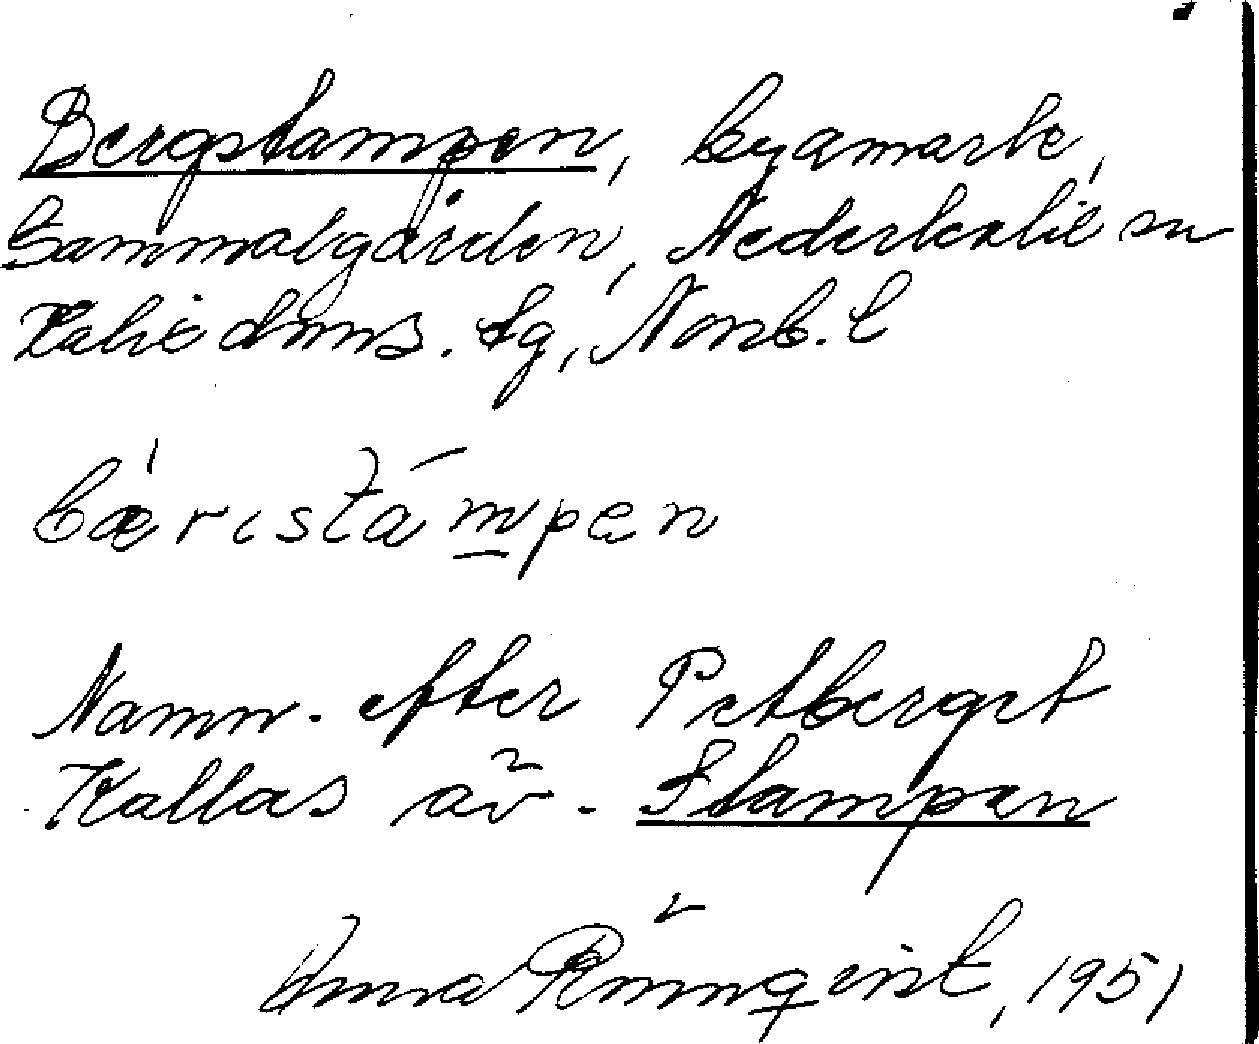 Bergstampen, byamark,
Gammalgården, Nederkalix sn
Kalix dmns. tg, Norrb. l
bæ´rɩstámpen
Namn. efter Petberget
Kallas äv. Stampen
Anna Rönnqvist, 1951